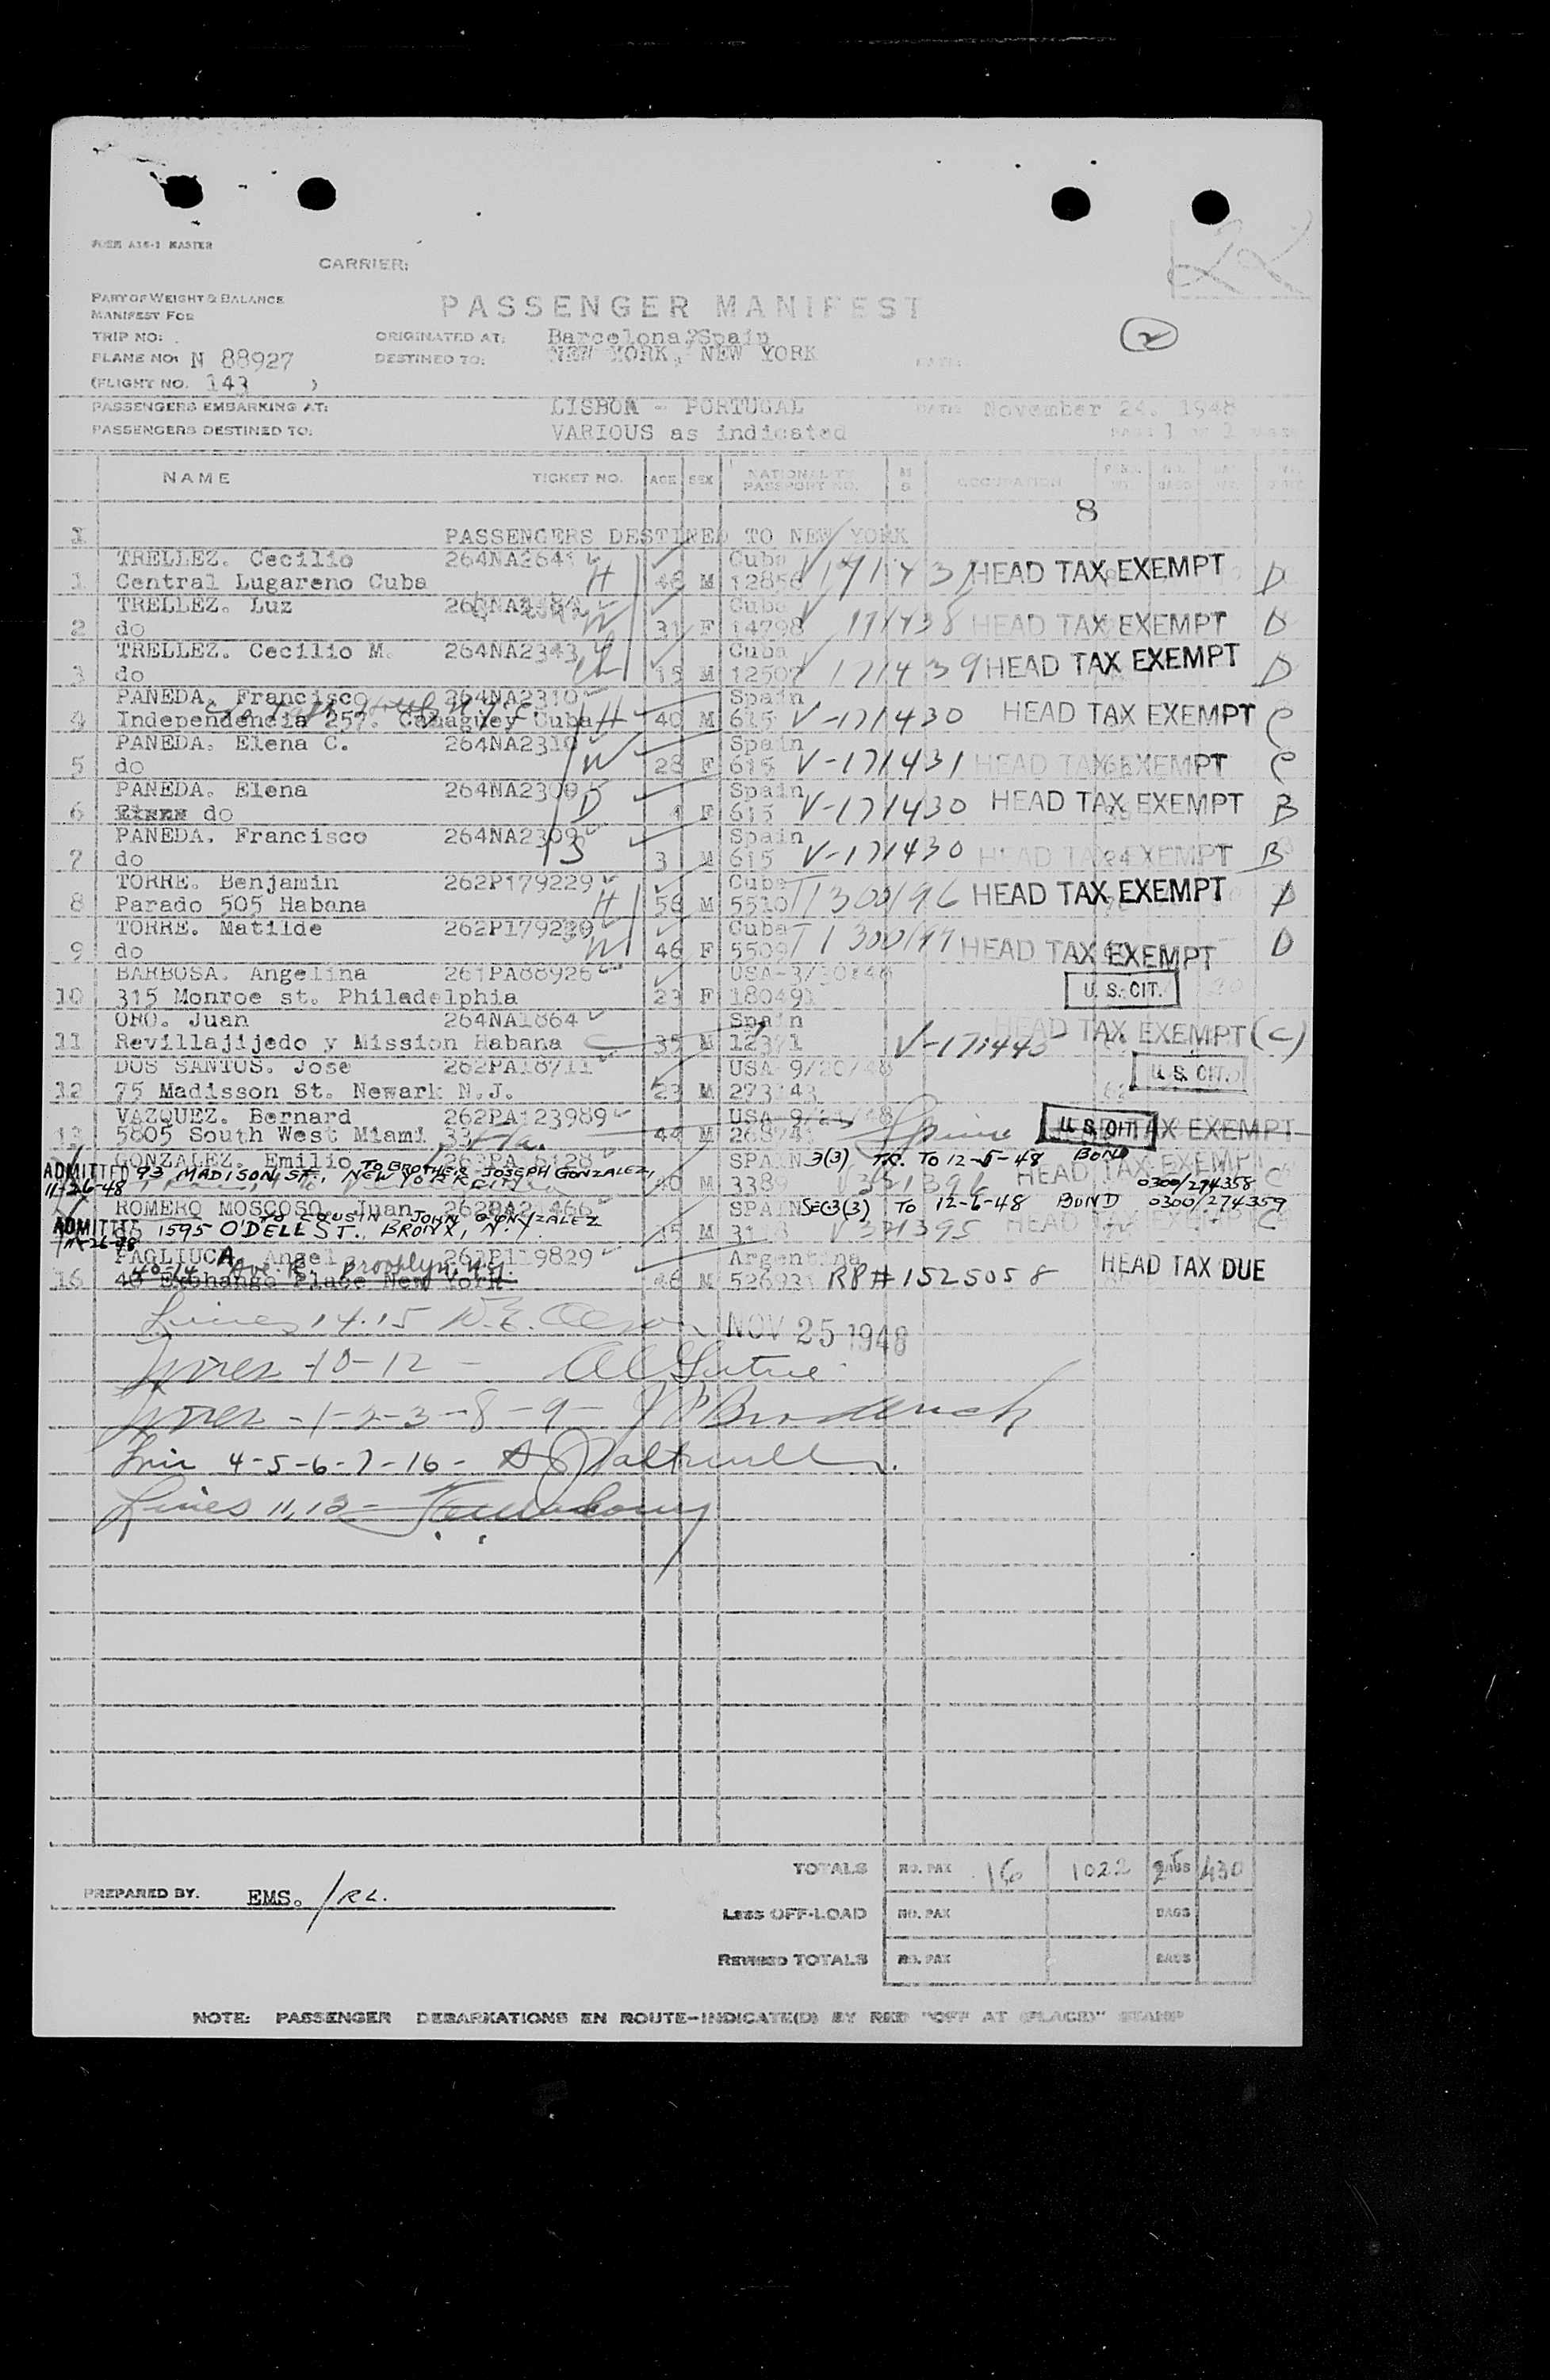 FORM A16-1 MASTER
CARRIER:
PART OF WEIGHT & BALANCE
MANIFEST FOR
PASSENGER MANIFEST
TRIP NO:
ORIGINATED AT: Barcelona, Spain
2
PLANE NO: N 88927
DESTINED TO: NEW YORK, NEW YORK
DATE:
(FLIGHT NO. 143 )
PASSENGERS EMBARKING AT: LISBON - PORTUGAL DATE: November 24. 1948
PASSENGERS DESTINED TO: VARIOUS as indicated
NAME TICKET NO. AGE SEX NATIONALITY PASSPORT NO. M S OCCUPATION
8
PASSENGERS DESTINED TO NEW YORK
TRELLEZ. Cecilio 264NA2641 Cuba
1 Central Lugareno Cuba H 48 M 12856 V 171437 HEAD TAX EXEMPT D
TRELLEZ. Luz Cuba
2 do W 31 F 14798 V 171438 HEAD TAX EXEMPT D
TRELLEZ. Cecilio M. 264NA2343 Cuba
3 do Ch 15 M 12507 V 171439 HEAD TAX EXEMPT D
PANEDA. Francisco 264NA2310 Spain
4 Independencia 257. Camaguey Cuba H 40 M 615 V-171430 HEAD TAX EXEMPT C
PANEDA. Elena C. 264NA2310 Spain
5 do W 28 F 615 V-171431 HEAD TAX EXEMPT C
PANEDA. Elena 264NA2309 Spain
6 do D 4 F 615 V-171430 HEAD TAX EXEMPT B
PANEDA. Francisco 264NA2309 Spain
7 do S 3 M 615 V-171430 HEAD TAX EXEMPT B
TORRE. Benjamin 262P179229 Cuba
8 Parado 505 Habana H 56 M 5510 T1300196 HEAD TAX EXEMPT D
TORRE. Matilde 262P179230 Cuba
9 do W 46 F 5509 T1300197 HEAD TAX EXEMPT D
BARBOSA. Angelina 261PA88926 USA-3/30/48
10 315 Monroe st. Philadelphia 23 F 180491 U. S. CIT.
ORO. Juan 264NA1864 Spain
11 Revillajijedo y Mission Habana 35 M 12371 V-171440 HEAD TAX EXEMPT (C)
DOS SANTOS. Jose 262PA18711 USA 9/20/48
12 75 Madisson St. Newark N.J. 23 M 273143 U. S. CIT.
VAZQUEZ. Bernard 262PA123989 USA-9/21/48
13 5805 South West Miami 33 Fla. 44 M U. S. CIT. HEAD TAX EXEMPT
GONZALEZ. Emilio TO BROTHER JOSEPH GONZALEZ, SPAIN 3(3) TR. TO 12-5-48 BOND
ADMITTED 93 MADISON ST., NEW YORK CITY 40 M 0300/274358 HEAD TAX EXEMPT C
11-26-48
ROMERO MOSCOSO. Juan SPAIN SEC3(3) TO 12-6-48 BOND 0300/274359
ADMITTED TO COUSIN JOHN GONZALEZ
1595 O'DELL ST., BRONX, N.Y. 35 M V 371395 HEAD TAX EXEMPT C
11-26-48
PAGLIUCA. Angel 262P119829 Argentina
Brooklyn, N.Y.
16 40 Exchange Place New York 46 M RP# 1525058 HEAD TAX DUE
Lines 14.15 NOV 25 1948
Lines 10-12 -
Lines -1-2-3-8-9- J P Broderick
Line 4-5-6-7-16-
Lines 11,13
TOTALS NO. PAX 16 1022 BAGS 25 430
PREPARED BY. EMS. /RL.
Less OFF-LOAD NO. PAX BAGS
REVISED TOTALS NO. PAX BAGS
NOTE: PASSENGER DEBARKATIONS EN ROUTE-INDICATE(D) BY RED "OFF AT (PLACE)" STAMP